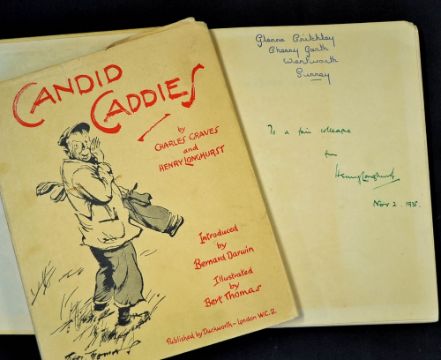 CANDID
CADDIES
by
CHARLES GRAVES
and
HENRY LONGHURST
Introduced
by
Bernard Darwin
Illustrated
by
Bert Thomas
Published by Duckworth - London W.C.2.
Bert Thomas
Cherry Garth
Wentworth
Surrey
To a fair
from
Henry Longhurst
Nov 2. 1935.